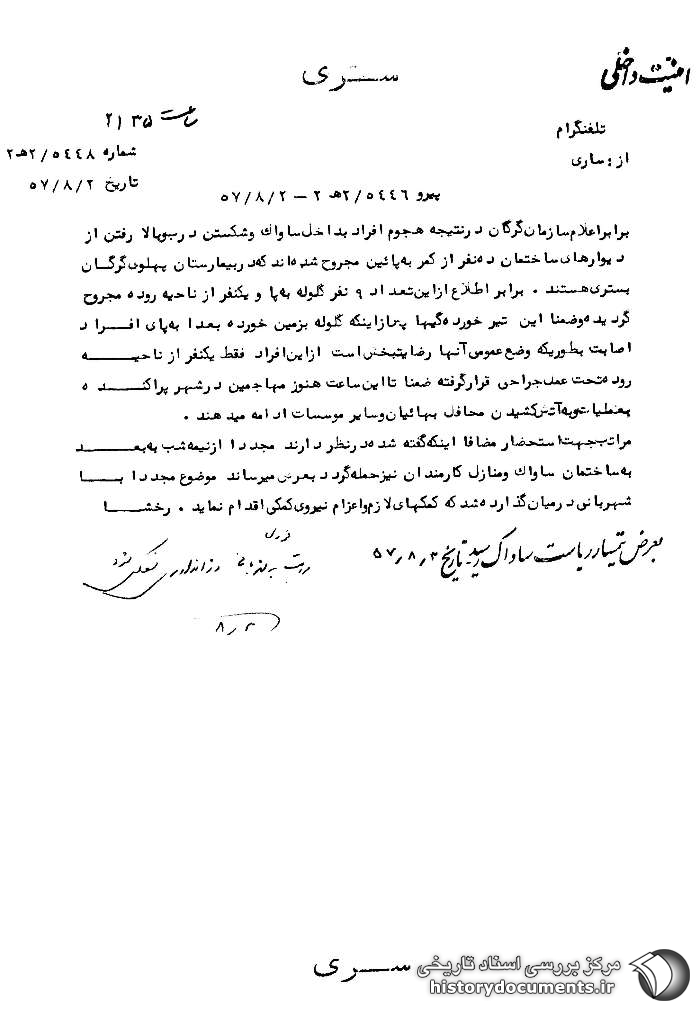 سری
امنیت داخلی
ساعت ۲۱۳۵
تلفنگرام
شماره ۲/۵۴۴۸ه‍ ۲
از : ساری
تاریخ ۵۷/۸/۲
پیرو ۲/۵۴۴۶ه‍ ۲ – ۵۷/۸/۲
برابر اعلام سازمان گرگان در نتیجه هجوم افراد بداخل ساواک و شکستن درب و بالا رفتن از
دیوارهای ساختمان ده نفر از کمر به پائین مجروح شده‌اند که در بیمارستان پهلوی گرگان
بستری هستند . برابر اطلاع از این تعداد ۹ نفر گلوله به پا و یکنفر از ناحیه روده مجروح
گردیده و ضمنا این تیر خورده‌گیها پس از اینکه گلوله بزمین خورده بعدا به پای افراد
اصابت بطوریکه وضع عمومی آنها رضایتبخش است از این افراد فقط یکنفر از ناحیه
روده تحت عمل جراحی قرار گرفته ضمنا تا این ساعت هنوز مهاجمین در شهر پراکنده
بعملیات به آتش کشیدن محافل بهائیان و سایر موسسات ادامه میدهند .
مراتب جهت استحضار مضافا اینکه گفته شده در نظر دارند مجددا از نیمه شب به بعد
به ساختمان ساواک و منازل کارمندان نیز حمله گردد بعرض میرساند موضوع مجددا با
شهربانی در میان گذارده شد که کمکهای لازم و اعزام نیروی کمکی اقدام نماید . رخشا
بعرض تیمسار ریاست ساواک رسید تاریخ ۵۷/۸/۳
۸/۳
سری
مرکز بررسی اسناد تاریخی
historydocuments.ir